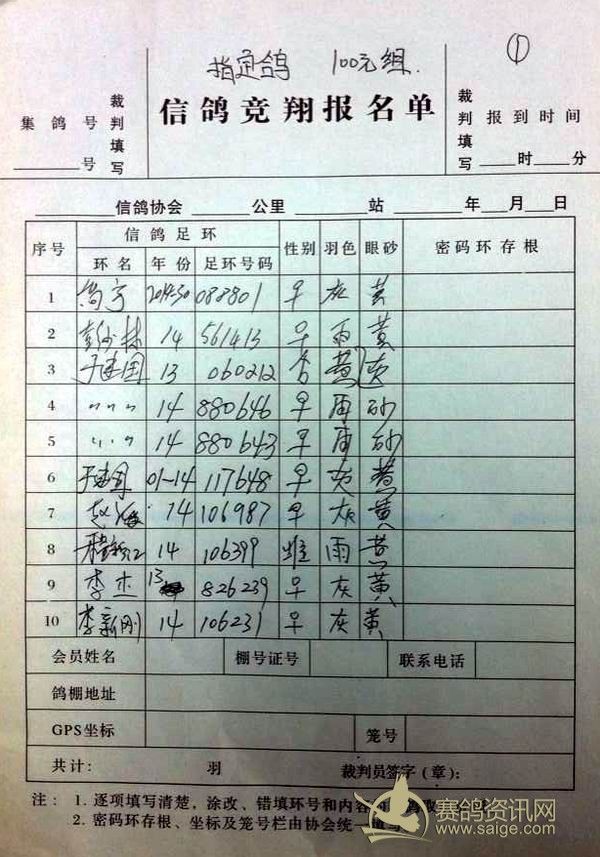 指定鸽 100元组.
①
集鸽号
______号
裁判填写
信鸽竞翔报名单
裁判填写
报到时间
____时____分
______信鸽协会 ______公里 ______站 ____年____月____日
序号 信鸽足环 性别 羽色 眼砂 密码环存根
环名 年份 足环号码
1 2014-30 088801 灰 黄
2 彭 林 14 561413 雨 黄
3 于建国 13 060212 黄
4 〃 〃 〃 14 880646 雨 砂
5 〃 〃 〃 14 880643 雨 砂
6 于建国 01-14 117648 灰 黄
7 赵 14 106987 灰 黄
8 14 106399 雌 雨 黄
9 李杰 13 826239 灰 黄
10 李新刚 14 106231 灰 黄
会员姓名 棚号证号 联系电话
鸽棚地址
GPS坐标 笼号
共计: 羽 裁判员签字(章):
注: 1. 逐项填写清楚,涂改、错填环号和内容
2. 密码环存根、坐标及笼号栏由协会统一填写
赛鸽资讯网
www.saige.com